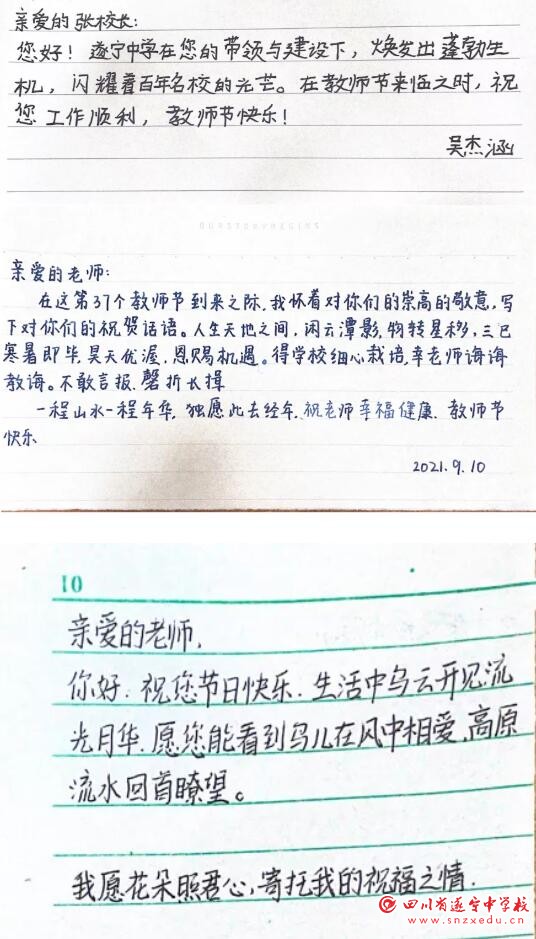 亲爱的张校长:
您好！遂宁中学在您的带领与建设下，焕发出蓬勃生
机，闪耀着百年名校的光芒。在教师节来临之时，祝
您工作顺利，教师节快乐！
吴杰涵
OURSTORYBEGINS
亲爱的老师:
在这第37个教师节到来之际,我怀着对你们的崇高的敬意,写
下对你们的祝贺话语。人生天地之间,闲云潭影,物转星移,三巳
寒暑即毕,昊天优渥,恩赐机遇。得学校细心栽培,幸老师谆谆
教诲。不敢言报,磬折长揖
一程山水一程年华,独愿此去经年,祝老师幸福健康,教师节
快乐
2021.9.10
10
亲爱的老师,
你好.祝您节日快乐.生活中乌云开见流
光月华,愿您能看到鸟儿在风中相爱,高原
流水回首瞭望。
我愿花朵照君心,寄托我的祝福之情.
四川省遂宁中学校
www.snzxedu.cn